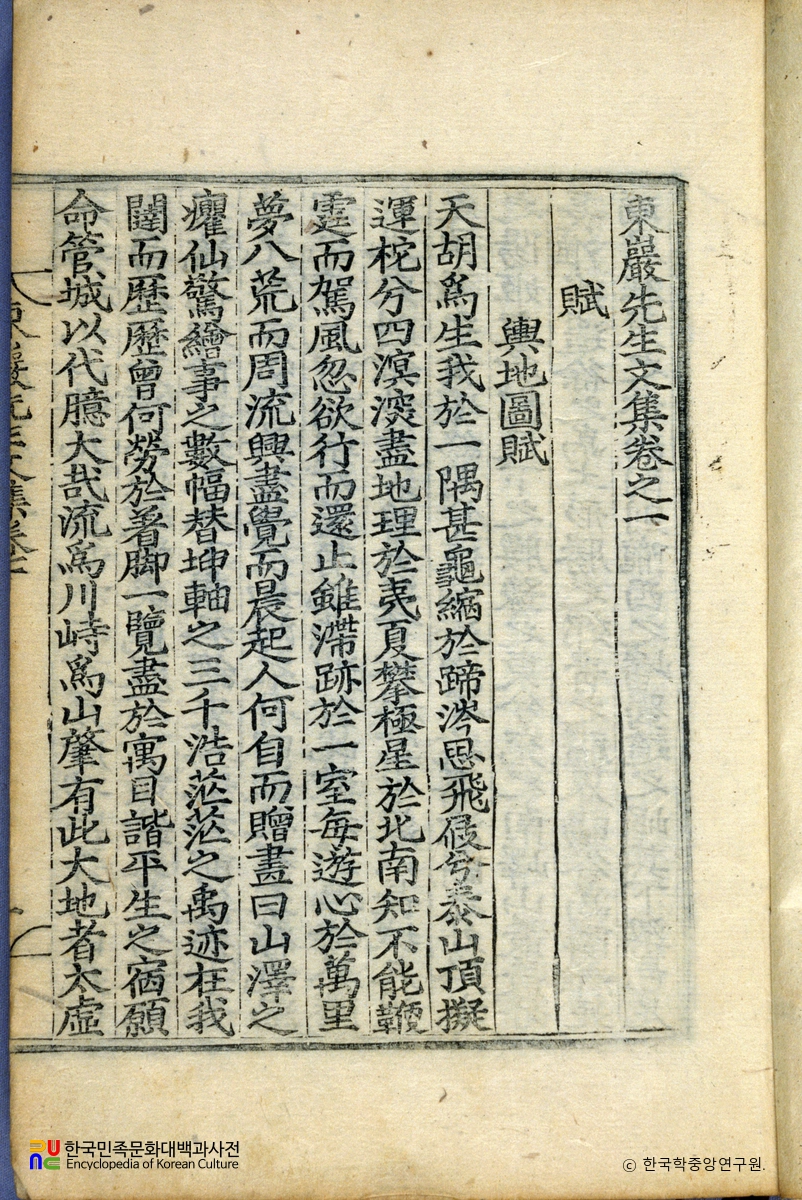 東巖先生文集卷之一
賦
輿地圖賦
天胡爲生我於一隅甚龜縮於蹄涔思飛屐兮泰山頂擬
運柁兮四溟深盡地理於夷夏攀極星於北南知不能鞭
霆而駕風忽欲行而還止雖滯跡於一室每遊心於萬里
夢八荒而周流興盡覺而晨起人何自而贈畫曰山澤之
癯仙驚繪事之數幅替坤軸之三千浩茫茫之禹迹枉我
闥而歷歷曾何勞於著脚一覽盡於寓目諧平生之宿願
命管城以代臆大哉流爲川峙爲山肇有此大地者太虛
東巖先生文集卷一
한국민족문화대백과사전
Encyclopedia of Korean Culture
ⓒ 한국학중앙연구원.